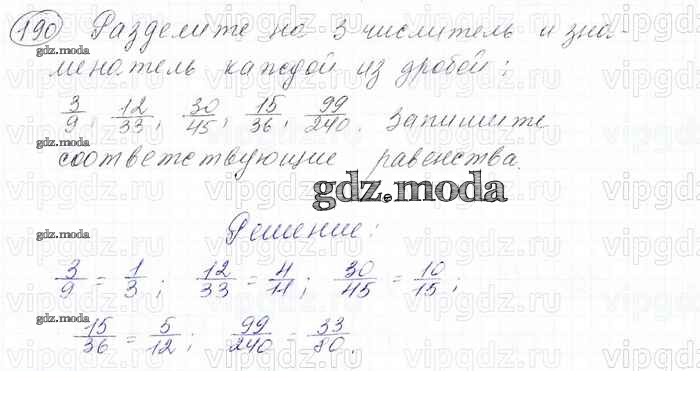 190 Разделите на 3 числитель и зна-
gdz.moda
менатель каждой из дробей:
3/9, 12/33, 30/45, 15/36, 99/240. Запишите
gdz.moda
соответствующие равенства.
vipgdz.ru vipgdz.ru vipgdz.ru vipgdz.ru
gdz.moda
Решение:
gdz.moda
vipgdz.ru vipgdz.ru vipgdz.ru vipgdz.ru
3/9 = 1/3; 12/33 = 4/11; 30/45 = 10/15;
gdz.moda
15/36 = 5/12; 99/240 = 33/80.
vipgdz.ru vipgdz.ru vipgdz.ru vipgdz.ru